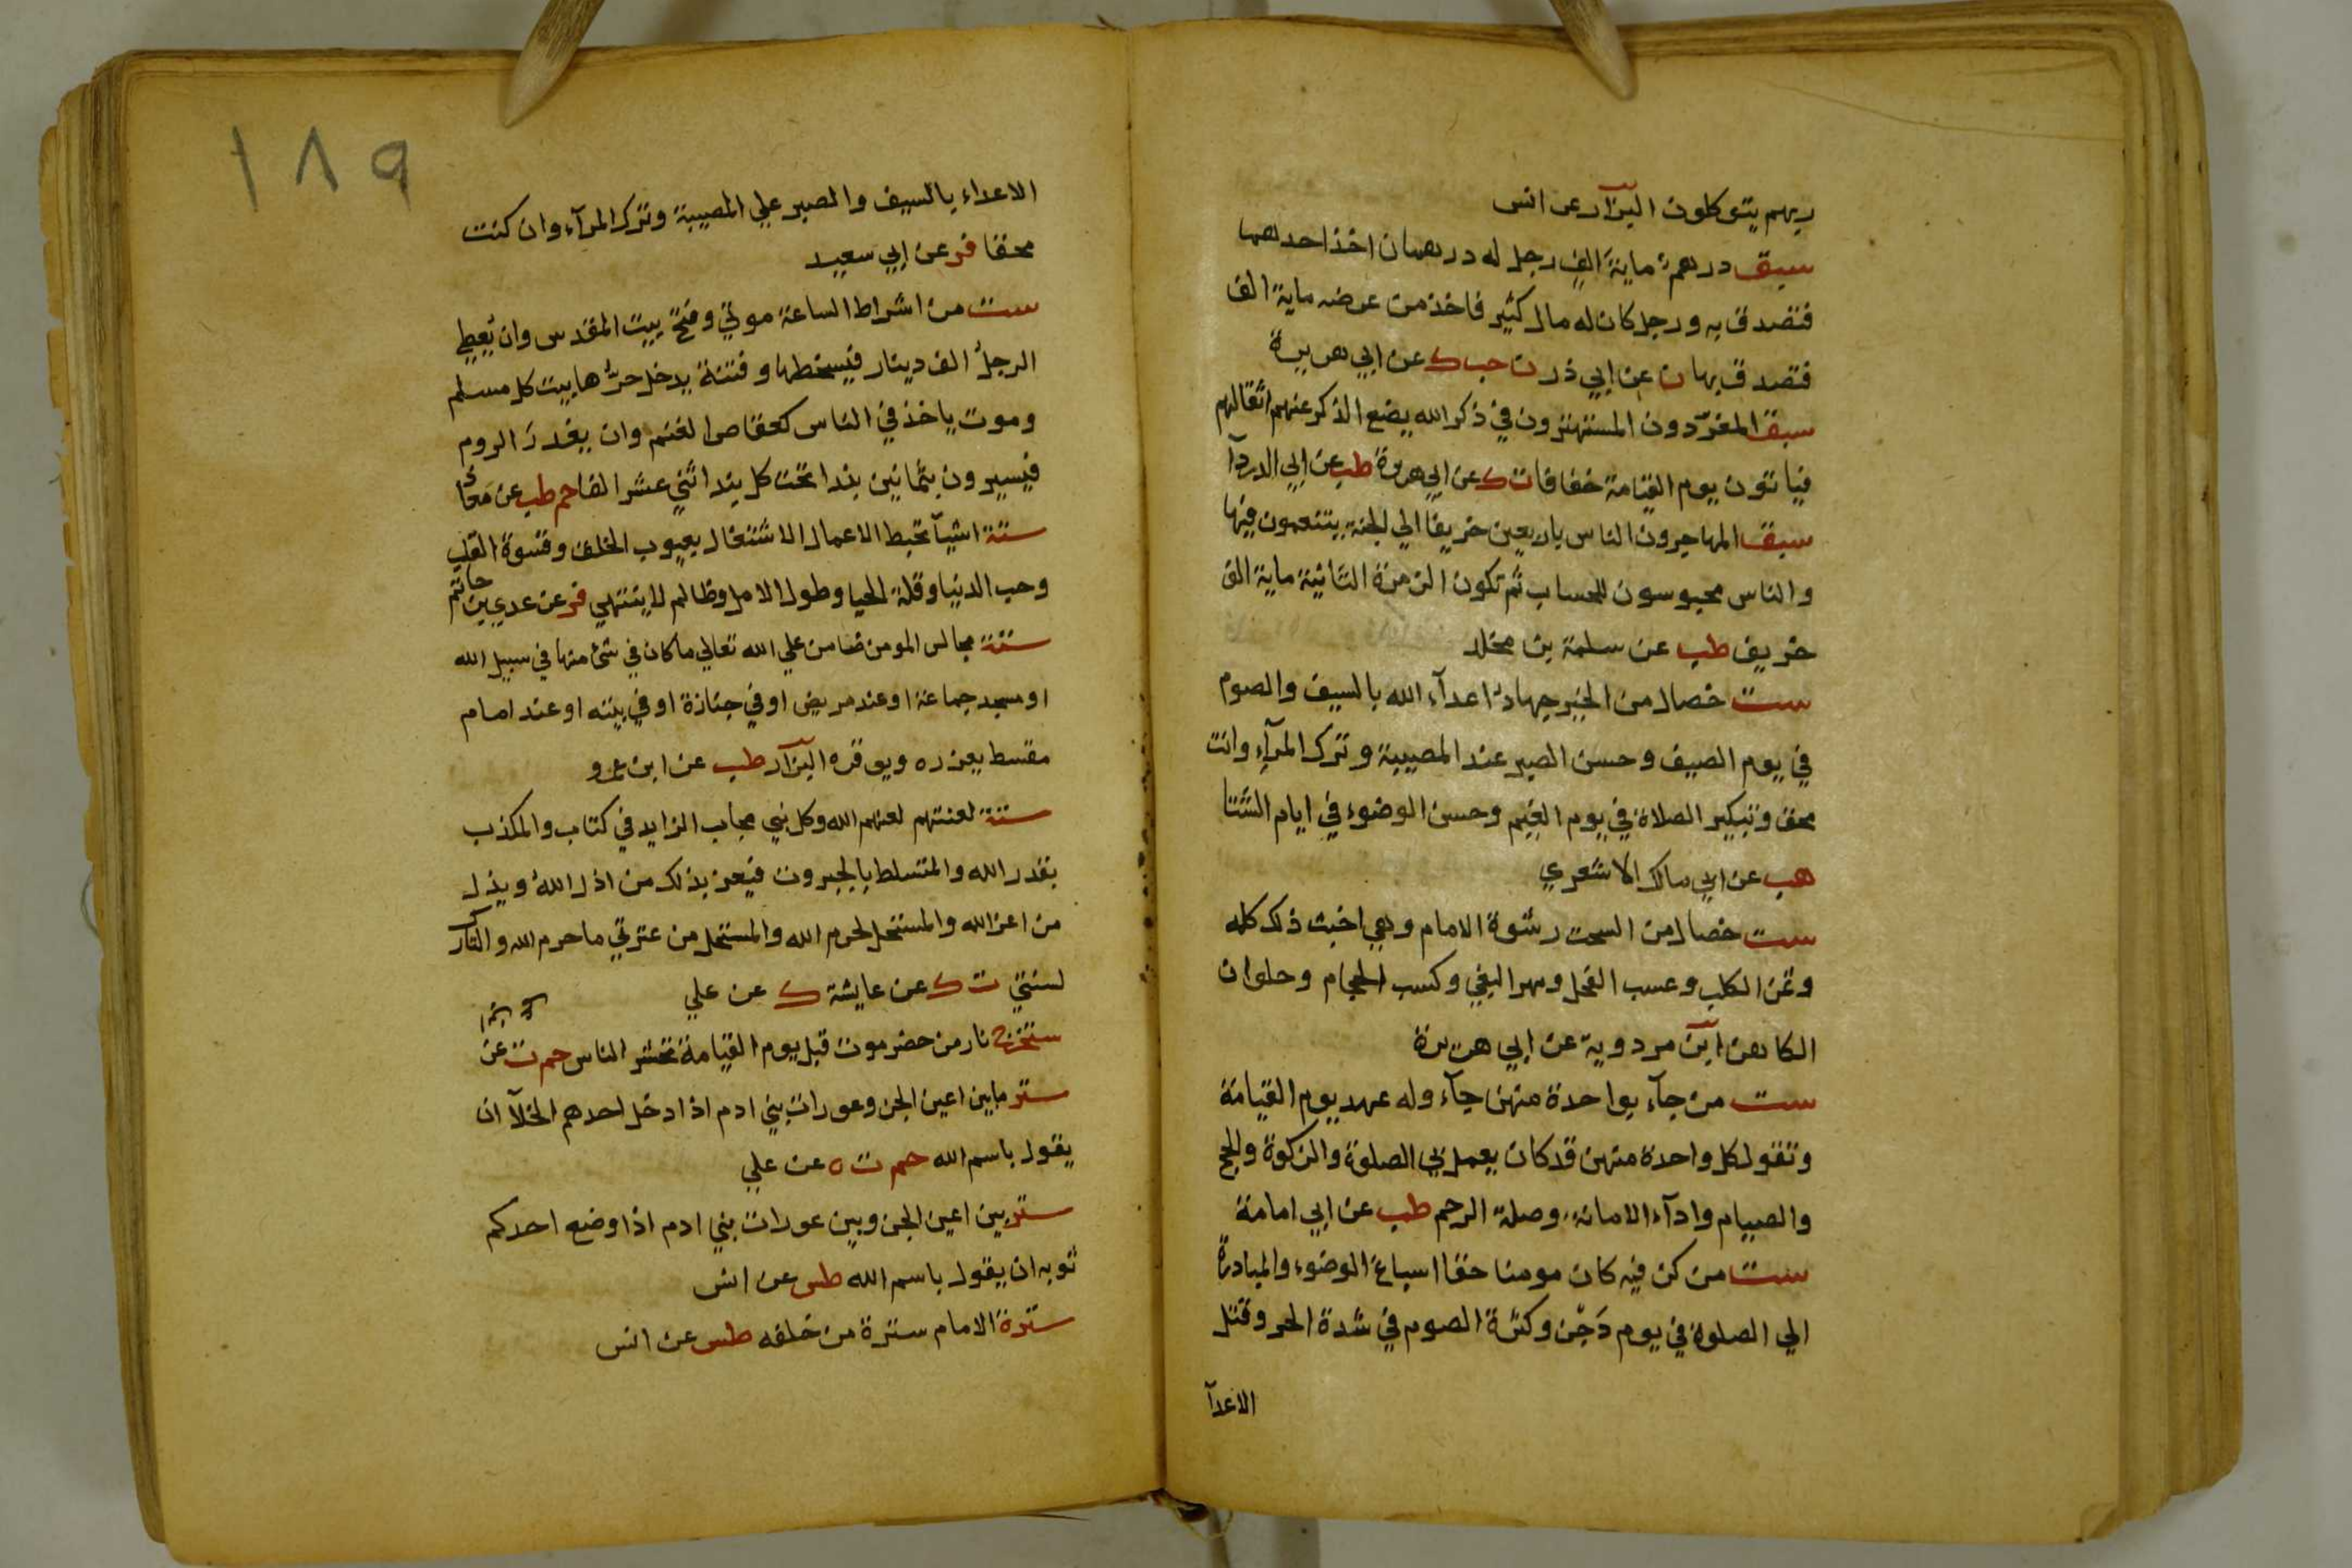 ربهم يتوكلون البزار عن انس
سبق درهم ماية الف رجل له درهمان اخذ احدهما
فتصدق به ورجل كان له مال كثير فاخذ من عرضه ماية الف
فتصدق بها ن عن ابي ذر ن حب ك عن ابي هريرة
سبق المفردون المستهترون في ذكر الله يضع الذكر عنهم اثقالهم
فياتون يوم القيامة خفافا ت ك عن ابي هريرة طب عن ابي الدردآ
سبق المهاجرون الناس باربعين خريفا الي الجنة يتنعمون فيها
والناس محبوسون للحساب ثم تكون الزمرة الثانية ماية الف
خريف طب عن سلمة بن مخلد
ست خصال من الخير جهاد اعدآء الله بالسيف والصوم
في يوم الصيف وحسن الصبر عند المصيبة وترك المرآء وانت
محق وتبكير الصلاة في يوم الغيم وحسن الوضوء في ايام الشتا
هب عن ابي مالك الاشعري
ست خصال من السحت رشوة الامام وهي اخبث ذلك كله
وثمن الكلب وعسب الفحل ومهر البغي وكسب الحجام وحلوان
الكاهن ابن مردوية عن ابي هريرة
ست من جآء بواحدة منهن جآء وله عهد يوم القيامة
وتقول كل واحدة منهن قد كان يعمل بي الصلوة والزكوة والحج
والصيام وادآء الامانة وصلة الرحم طب عن ابي امامة
ست من كن فيه كان مومنا حقا اسباغ الوضوء والمبادرة
الي الصلوة في يوم دجن وكثرة الصوم في شدة الحر وقتل
الاعدآ
١٨٩
الاعداء بالسيف والصبر علي المصيبة وترك المرآء وان كنت
محقا فر عن ابي سعيد
ست من اشراط الساعة موتي وفتح بيت المقدس وان يعطي
الرجل الف دينار فيسخطها وفتنة يدخل حرها بيت كل مسلم
وموت ياخذ في الناس كعقاص الغنم وان يغدر الروم
فيسيرون بثمانين بندا تحت كل بند اثني عشر الفا حم طب عن معاذ
ستة اشيآ تحبط الاعمال الاشتغال بعيوب الخلق وقسوة القلب
وحب الدنيا وقلة الحيا وطول الامل وظالم لا ينتهي فر عن عدي بن حاتم
ستة مجالس المومن ضامن علي الله تعالي ما كان في شئ منها في سبيل الله
او مسجد جماعة او عند مريض او في جنازة او في بيته او عند امام
مقسط يعزره ويوقره البزار طب عن ابن عمرو
ستة لعنتهم لعنهم الله وكل نبي مجاب الزايد في كتاب والمكذب
بقدر الله والمتسلط بالجبروت فيعز بذلك من اذل الله ويذل
من اعز الله والمستحل لحرم الله والمستحل من عترتي ما حرم الله والتارك
لسنتي ت ك عن عايشة ك عن علي
ستخرج نار من حضرموت قبل يوم القيامة تحشر الناس حم ت عن
ستر ما بين اعين الجن وعورات بني ادم اذا دخل احدهم الخلآ ان
يقول باسم الله حم ت ه عن علي
ستر بين اعين الجن وبين عورات بني ادم اذا وضع احدكم
ثوبه ان يقول باسم الله طس عن انس
سترة الامام سترة من خلفه طس عن انس